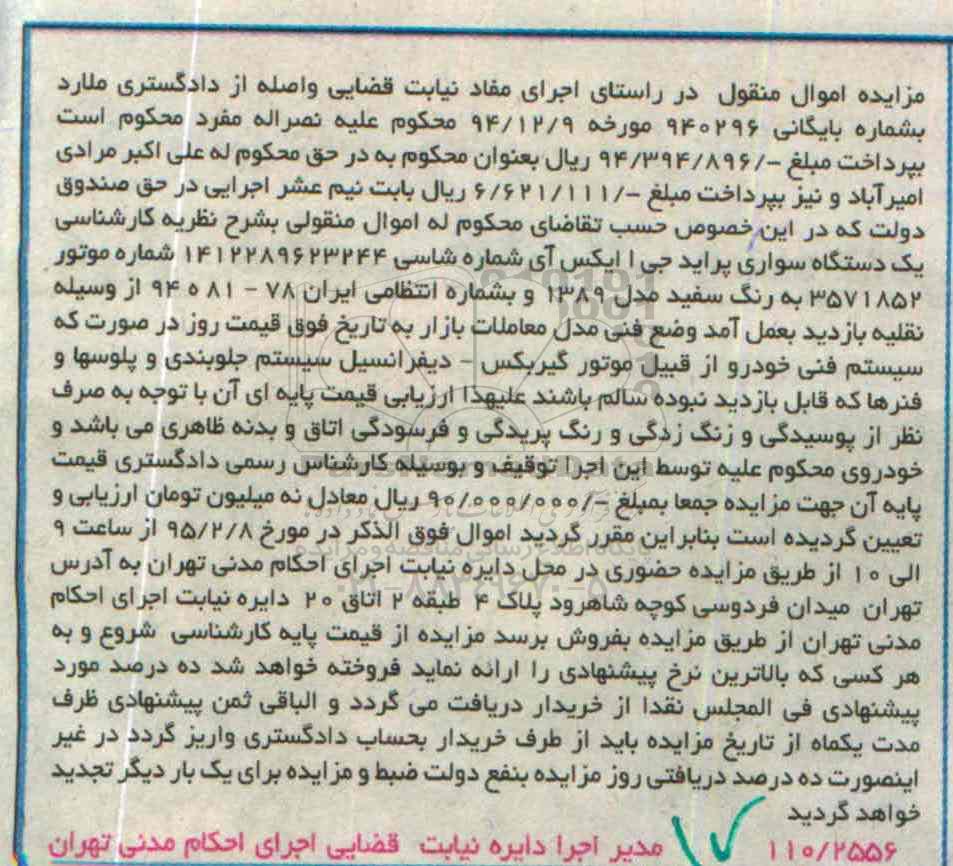 مزایده اموال منقول در راستای اجرای مفاد نیابت قضایی واصله از دادگستری ملارد
بشماره بایگانی ۹۴۰۲۹۶ مورخه ۹۴/۱۲/۹ محکوم علیه نصراله مفرد محکوم است
بپرداخت مبلغ -/۹۴/۳۹۴/۸۹۶ ریال بعنوان محکوم به در حق محکوم له علی اکبر مرادی
امیرآباد و نیز بپرداخت مبلغ -/۶/۶۲۱/۱۱۱ ریال بابت نیم عشر اجرایی در حق صندوق
دولت که در این خصوص حسب تقاضای محکوم له اموال منقولی بشرح نظریه کارشناسی
یک دستگاه سواری پراید جی ا ایکس آی شماره شاسی ۱۴۱۲۲۸۹۶۲۳۲۴۴ شماره موتور
۳۵۷۱۸۵۲ به رنگ سفید مدل ۱۳۸۹ و بشماره انتظامی ایران ۷۸ - ۸۱ ه ۹۴ از وسیله
نقلیه بازدید بعمل آمد وضع فنی مدل معاملات بازار به تاریخ فوق قیمت روز در صورت که
سیستم فنی خودرو از قبیل موتور گیربکس - دیفرانسیل سیستم جلوبندی و پلوسها و
فنرها که قابل بازدید نبوده سالم باشند علیهذا ارزیابی قیمت پایه ای آن با توجه به صرف
نظر از پوسیدگی و زنگ زدگی و رنگ پریدگی و فرسودگی اتاق و بدنه ظاهری می باشد و
خودروی محکوم علیه توسط این اجرا توقیف و بوسیله کارشناس رسمی دادگستری قیمت
پایه آن جهت مزایده جمعا بمبلغ -/۹۰/۰۰۰/۰۰۰ ریال معادل نه میلیون تومان ارزیابی و
تعیین گردیده است بنابراین مقرر گردید اموال فوق الذکر در مورخ ۹۵/۲/۸ از ساعت ۹
الی ۱۰ از طریق مزایده حضوری در محل دایره نیابت اجرای احکام مدنی تهران به آدرس
تهران میدان فردوسی کوچه شاهرود پلاک ۴ طبقه ۲ اتاق ۲۰ دایره نیابت اجرای احکام
مدنی تهران از طریق مزایده بفروش برسد مزایده از قیمت پایه کارشناسی شروع و به
هر کسی که بالاترین نرخ پیشنهادی را ارائه نماید فروخته خواهد شد ده درصد مورد
پیشنهادی فی المجلس نقدا از خریدار دریافت می گردد و الباقی ثمن پیشنهادی ظرف
مدت یکماه از تاریخ مزایده باید از طرف خریدار بحساب دادگستری واریز گردد در غیر
اینصورت ده درصد دریافتی روز مزایده بنفع دولت ضبط و مزایده برای یک بار دیگر تجدید
خواهد گردید
۱۱۰/۲۵۵۶ مدیر اجرا دایره نیابت قضایی اجرای احکام مدنی تهران